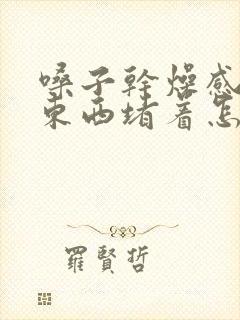 嗓子幹燥感
東西堵着怎
羅賢哲